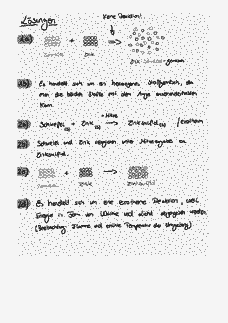 Lösungen
Keine Reaktion!
1a) + =>
Schwefel Zink Zink Schwefel - gemisch
1b) Es handelt sich um ein heterogenes Stoffgemisch, da
man die beiden Stoffe mit dem Auge unterscheiden
kann.
2a) Schwefel(s) + Zink(s) → Zinksulfid(s) / exotherm
2b) Schwefel und Zink reagieren unter Wärmeabgabe zu
Zinksulfid.
2c) + →
Schwefel Zink Zinksulfid
2d) Es handelt sich um eine exotherme Reaktion, weil
Energie in Form von Wärme und Licht abgegeben werden
(Beobachtung: Flamme und erhöhte Temperatur der Umgebung)